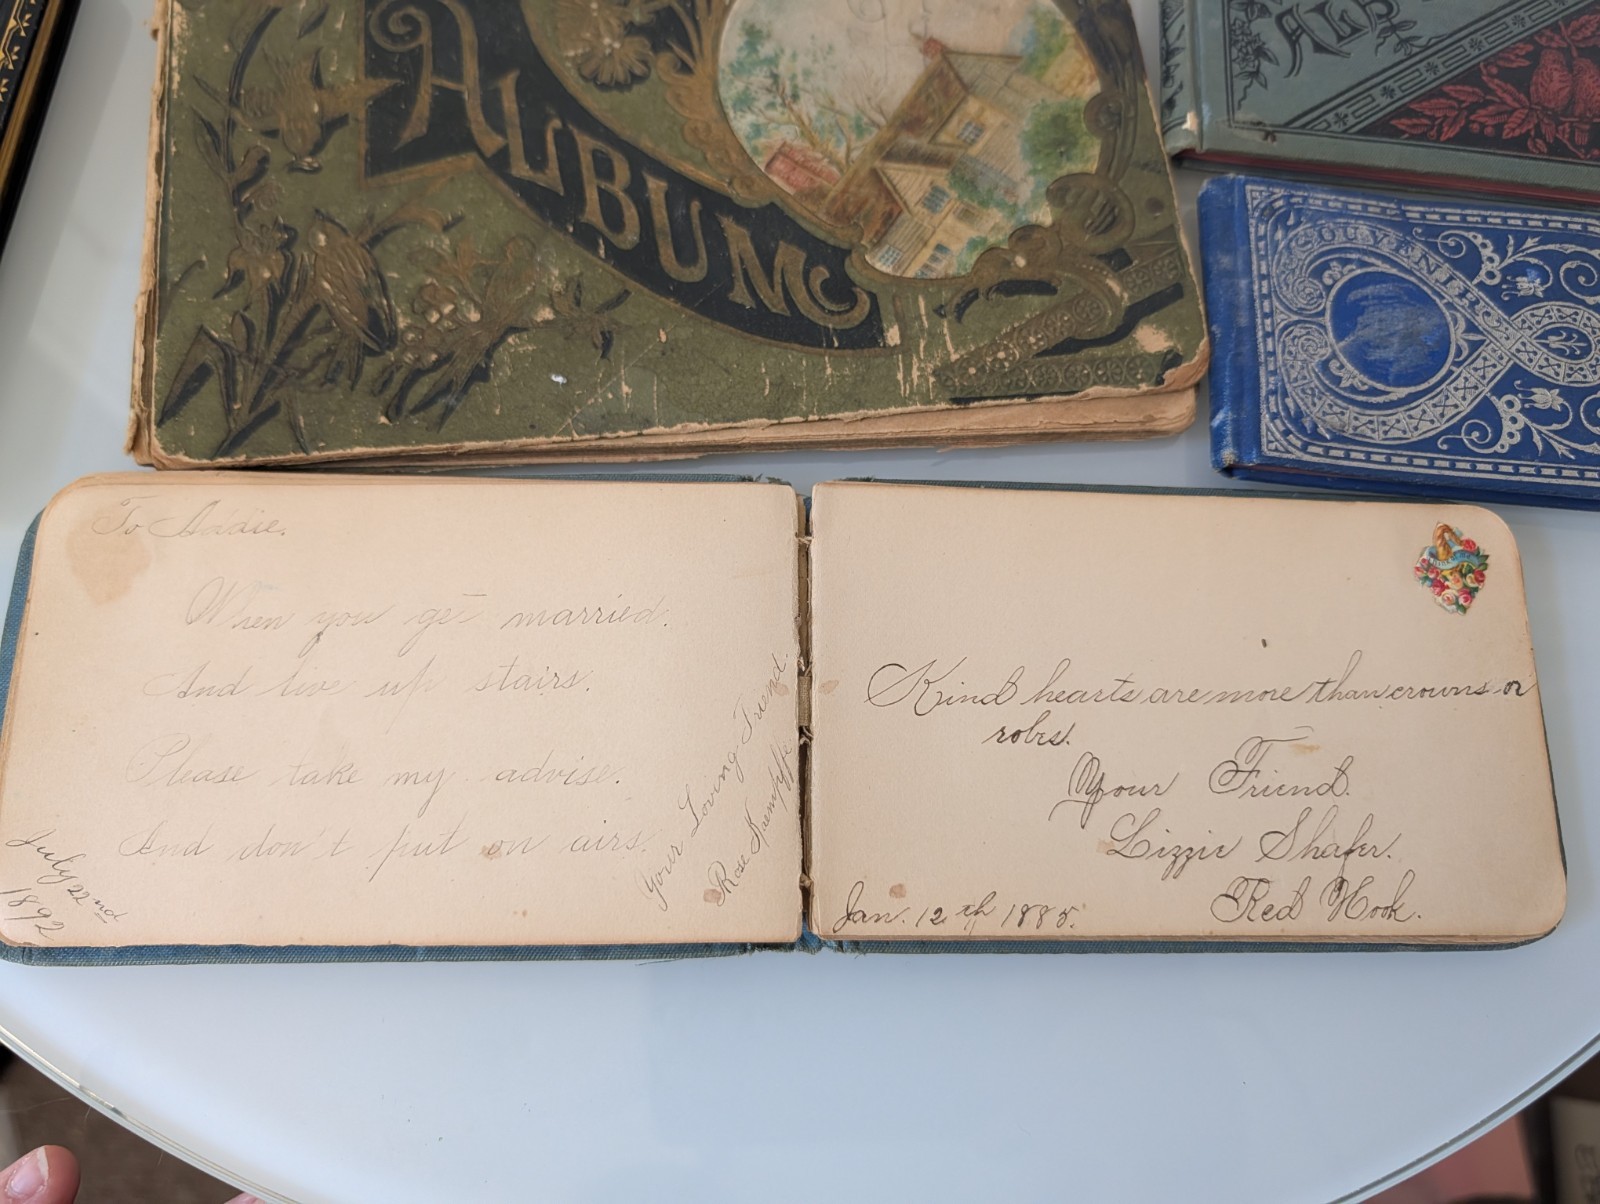 ALBUM
ALB
SOUVENIR
To Addie.
When you get married.
And live up stairs.
Please take my advise.
And don't put on airs.
Your Loving Friend.
Rose Kaempffe
July 22nd
1892
Kind hearts are more than crowns or
robes.
Your Friend.
Lizzie Shafer.
Red Hook.
Jan. 12th 1885.